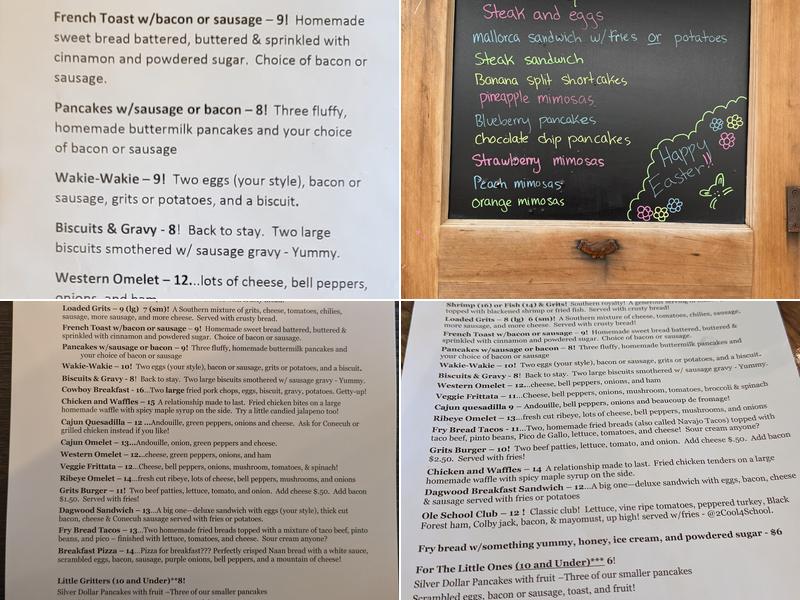 French Toast w/bacon or sausage – 9! Homemade
sweet bread battered, buttered & sprinkled with
cinnamon and powdered sugar. Choice of bacon or
sausage.
Pancakes w/sausage or bacon – 8! Three fluffy,
homemade buttermilk pancakes and your choice
of bacon or sausage
Wakie-Wakie – 9! Two eggs (your style), bacon or
sausage, grits or potatoes, and a biscuit.
Biscuits & Gravy - 8! Back to stay. Two large
biscuits smothered w/ sausage gravy - Yummy.
Western Omelet – 12...lots of cheese, bell peppers,
onions, and ham
Steak and eggs
mallorca sandwich w/fries or potatoes
Steak sandwich
Banana split shortcakes
pineapple mimosas
Blueberry pancakes
Chocolate chip pancakes
Strawberry mimosas
Peach mimosas
Orange mimosas
Happy
Easter!!
Loaded Grits – 9 (lg) 7 (sm)! A Southern mixture of grits, cheese, tomatoes, chilies,
sausage, more sausage, and more cheese. Served with crusty bread.
French Toast w/bacon or sausage – 9! Homemade sweet bread battered, buttered &
sprinkled with cinnamon and powdered sugar. Choice of bacon or sausage.
Pancakes w/sausage or bacon – 9! Three fluffy, homemade buttermilk pancakes and
your choice of bacon or sausage
Wakie-Wakie – 10! Two eggs (your style), bacon or sausage, grits or potatoes, and a biscuit.
Biscuits & Gravy - 8! Back to stay. Two large biscuits smothered w/ sausage gravy - Yummy.
Cowboy Breakfast - 16...Two large fried pork chops, eggs, biscuit, gravy, potatoes. Getty-up!
Chicken and Waffles – 15 A relationship made to last. Fried chicken bites on a large
homemade waffle with spicy maple syrup on the side. Try a little candied jalapeno too!
Cajun Quesadilla – 12 ...Andouille, green peppers, onions and cheese. Ask for Conecuh or
grilled chicken instead if you like!
Cajun Omelet – 13...Andouille, onion, green peppers and cheese.
Western Omelet – 12...cheese, green peppers, onions, and ham
Veggie Frittata – 12...Cheese, bell peppers, onions, mushroom, tomatoes, & spinach!
Ribeye Omelet – 14...fresh cut ribeye, lots of cheese, bell peppers, mushrooms, and onions
Grits Burger – 11! Two beef patties, lettuce, tomato, and onion. Add cheese $.50. Add bacon
$1.50. Served with fries!
Dagwood Sandwich – 13...A big one—deluxe sandwich with eggs (your style), thick cut
bacon, cheese & Conecuh sausage served with fries or potatoes.
Fry Bread Tacos – 13...Two homemade fried breads topped with a mixture of taco beef, pinto
beans, and pico – finished with lettuce, tomatoes, and cheese. Sour cream anyone?
Breakfast Pizza – 14...Pizza for breakfast??? Perfectly crisped Naan bread with a white sauce,
scrambled eggs, bacon, sausage, purple onions, bell peppers, and a mountain of cheese!
Little Gritters (10 and Under)**8!
Silver Dollar Pancakes with fruit –Three of our smaller pancakes
Shrimp (16) or Fish (14) & Grits! Southern royalty! A generous serving
topped with blackened shrimp or fried fish. Served with crusty bread.
Loaded Grits – 8 (lg) 6 (sm)! A Southern mixture of cheese, tomatoes, chilies, sausage,
more sausage, and more cheese. Served with crusty bread!
French Toast w/bacon or sausage – 9! Homemade sweet bread battered, buttered &
sprinkled with cinnamon and powdered sugar. Choice of bacon or sausage.
Pancakes w/sausage or bacon – 8! Three fluffy, homemade buttermilk pancakes and
your choice of bacon or sausage
Wakie-Wakie – 10! Two eggs (your style), bacon or sausage, grits or potatoes, and a biscuit.
Biscuits & Gravy - 8! Back to stay. Two large biscuits smothered w/ sausage gravy - Yummy.
Western Omelet – 12...cheese, bell peppers, onions, and ham
Veggie Frittata – 11...Cheese, bell peppers, onions, mushroom, tomatoes, broccoli & spinach
Cajun quesadilla 9 – Andouille, bell peppers, onions and beaucoup de fromage!
Ribeye Omelet – 13...fresh cut ribeye, lots of cheese, bell peppers, mushrooms, and onions
Fry Bread Tacos - 11...Two, homemade fried breads (also called Navajo Tacos) topped with
taco beef, pinto beans, Pico de Gallo, lettuce, tomatoes, and cheese! Sour cream anyone?
Grits Burger – 10! Two beef patties, lettuce, tomato, and onion. Add cheese $.50. Add bacon
$2.50. Served with fries!
Chicken and Waffles – 14 A relationship made to last. Fried chicken tenders on a large
homemade waffle with spicy maple syrup on the side.
Dagwood Breakfast Sandwich – 12...A big one—deluxe sandwich with eggs, bacon, cheese
& sausage served with fries or potatoes
Ole School Club – 12 ! Classic club! Lettuce, vine ripe tomatoes, peppered turkey, Black
Forest ham, Colby jack, bacon, & mayomust, up high! served w/fries - @2Cool4School.
Fry bread w/something yummy, honey, ice cream, and powdered sugar - $6
For The Little Ones (10 and Under)*** 6!
Silver Dollar Pancakes with fruit –Three of our smaller pancakes
Scrambled eggs, bacon or sausage, toast, and fruit!